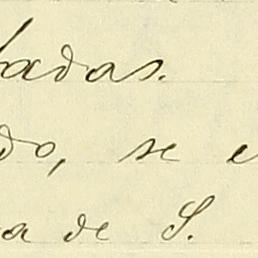 badas.
do, se e
a de S.